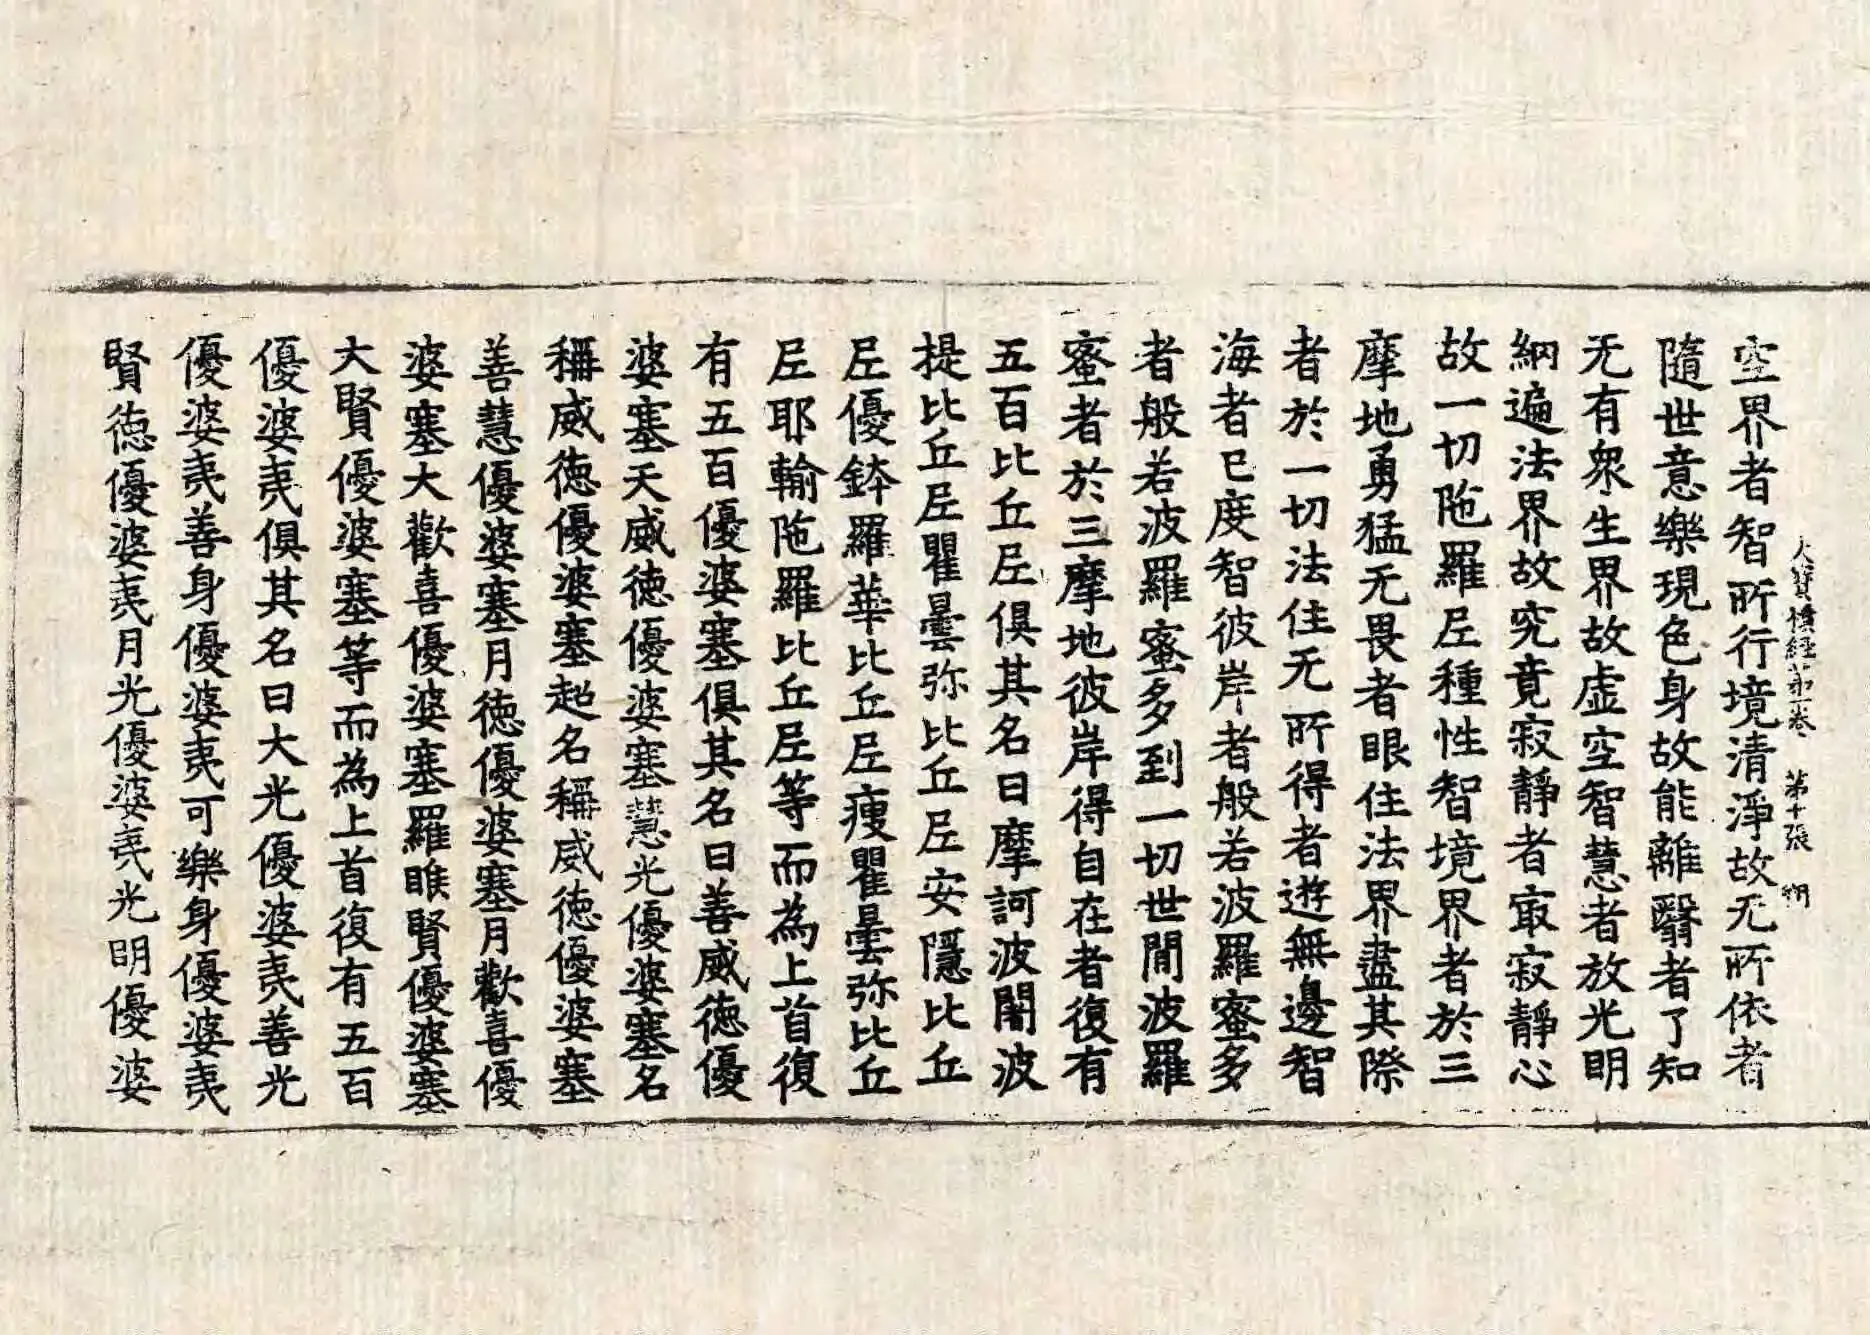 大寶積經第一卷 第十張 翔
空界者智所行境清淨故无所依者
隨世意樂現色身故能離翳者了知
无有衆生界故虛空智慧者放光明
網遍法界故究竟寂靜者㝡寂靜心
故一切陁羅尼種性智境界者於三
摩地勇猛无畏者眼住法界盡其際
者於一切法住无所得者遊無邊智
海者已度智彼岸者般若波羅蜜多
者般若波羅蜜多到一切世閒波羅
蜜者於三摩地彼岸得自在者復有
五百比丘尼俱其名曰摩訶波闍波
提比丘尼瞿曇弥比丘尼安隱比丘
尼優鉢羅華比丘尼瘦瞿曇弥比丘
尼耶輸陁羅比丘尼等而為上首復
有五百優婆塞俱其名曰善威徳優
婆塞天威徳優婆塞慧光優婆塞名
稱威徳優婆塞超名稱威徳優婆塞
善慧優婆塞月徳優婆塞月歡喜優
婆塞大歡喜優婆塞羅睺賢優婆塞
大賢優婆塞等而為上首復有五百
優婆夷俱其名曰大光優婆夷善光
優婆夷善身優婆夷可樂身優婆夷
賢徳優婆夷月光優婆夷光明優婆